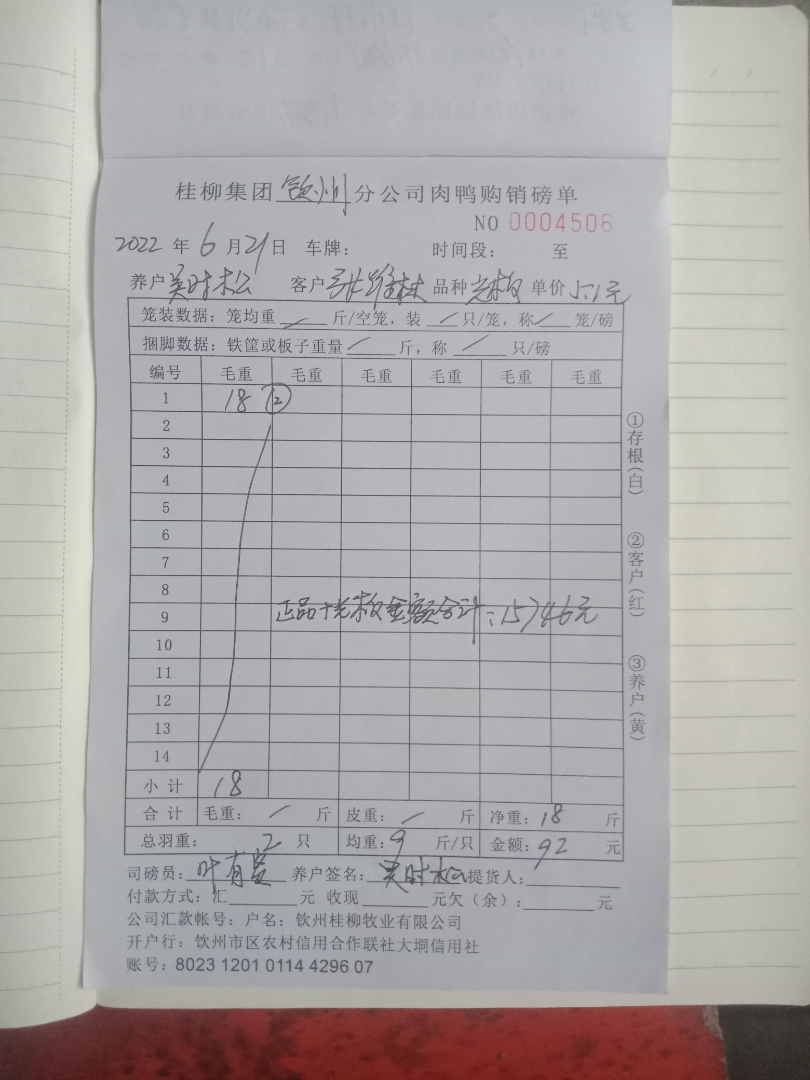 桂柳集团钦州分公司肉鸭购销磅单
NO 0004506
2022年6月21日 车牌： 时间段： 至
养户吴时松 客户张维林 品种光板 单价5.1元
笼装数据：笼均重/斤/空笼，装/只/笼，称/笼/磅
捆脚数据：铁筐或板子重量/斤，称/只/磅
编号 毛重 毛重 毛重 毛重 毛重 毛重
1 18 ②
2
3
4
5
6
7
8
正品+光板金额合计：15746元
9
10
11
12
13
14
小计 18
合计 毛重：/斤 皮重：/斤 净重：18斤
总羽重：2只 均重：9斤/只 金额：92元
司磅员：叶有 养户签名：吴时松 提货人：
付款方式：汇 元 收现 元欠（余）： 元
公司汇款帐号：户名：钦州桂柳牧业有限公司
开户行：钦州市区农村信用合作联社大垌信用社
账号：8023 1201 0114 4296 07
①存根（白）
②客户（红）
③养户（黄）